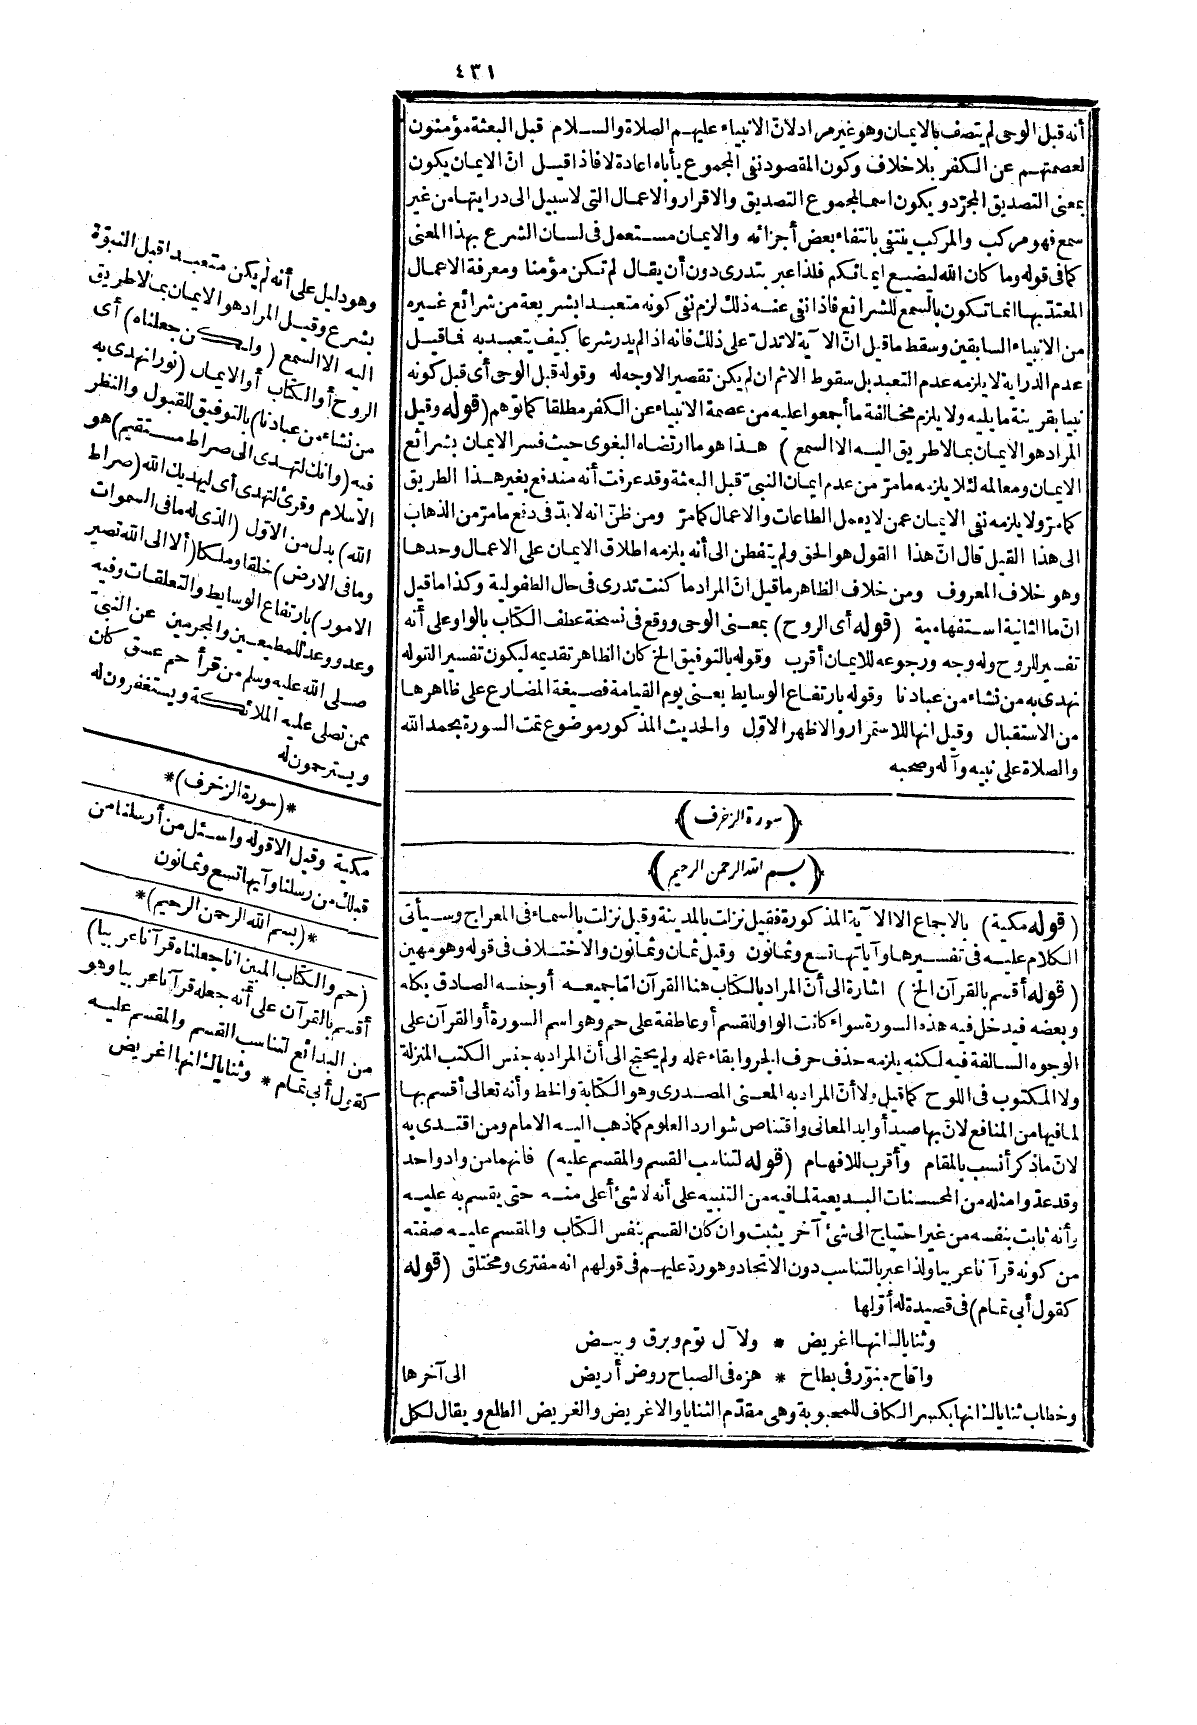 ٤٣١
أنه قبل الوحى لم يتصف بالايمان وهو غير مراد لانّ الانبياء عليهم الصلاة والسلام قبل البعثة مؤمنون
لعصمتهم عن الكفر بلا خلاف وكون المقصود نفى المجموع يأباه اعادة لا فاذا قيل انّ الايمان يكون
بمعنى التصديق المجرّد ويكون اسما لمجموع التصديق والاقرار والاعمال التى لا سبيل الى درايتها من غير
سمع فهو مركب والمركب ينتفى بانتفاء بعض أجزائه والايمان مستعمل فى لسان الشرع بهذا المعنى
كما فى قوله وما كان الله ليضيع ايمانكم فلذا عبر بتدرى دون أن يقال لم تكن مؤمنا ومعرفة الاعمال
المعتدّ بها انما تكون بالسمع للشرائع فاذا نفى عنه ذلك لزم نفى كونه متعبدا بشريعة من شرائع غيره
من الانبياء السابقين وسقط ما قيل انّ الآية لا تدل على ذلك فانه اذا لم يدر شرعا كيف يتعبد به فما قيل
عدم الدراية لا يلزمه عدم التعبد بل سقوط الاثم ان لم يكن تقصير لا وجه له وقوله قبل الوحى أى قبل كونه
نبيا بقرينة ما يليه ولا يلزم مخالفة ما أجمعوا عليه من عصمة الانبياء عن الكفر مطلقا كما توهم (قوله وقيل
المراد هو الايمان بما لا طريق اليه الا السمع) هذا هو ما ارتضاه البغوى حيث فسر الايمان بشرائع
الايمان ومعالمه لئلا يلزمه ما مرّ من عدم ايمان النبىّ قبل البعثة وقد عرفت أنه مندفع بغير هذا الطريق
كما مرّ ولا يلزمه نفى الايمان عمن لا يعمل الطاعات والاعمال كما مرّ ومن ظنّ انه لا بدّ فى دفع ما مرّ من الذهاب
الى هذا القيل قال انّ هذا القول هو الحق ولم يتفطن الى أنه يلزمه اطلاق الايمان على الاعمال وحدها
وهو خلاف المعروف ومن خلاف الظاهر ما قيل انّ المراد ما كنت تدرى فى حال الطفولية وكذا ما قيل
انّ ما الثانية استفهامية (قوله أى الروح) بمعنى الوحى ووقع فى نسخة عطف الكتاب بالواو على أنه
تفسير للروح وله وجه ورجوعه للايمان أقرب وقوله بالتوفيق الخ كان الظاهر تقديمه ليكون تفسيرا لقوله
نهدى به من نشاء من عبادنا وقوله بارتفاع الوسايط بعنى يوم القيامة فصيغة المضارع على ظاهرها
من الاستقبال وقيل انها للاستمرار والاظهر الاوّل والحديث المذكور موضوع تمت السورة بحمد الله
والصلاة على نبيه وآله وصحبه
﴿سورة الزخرف﴾
﴿بسم الله الرحمن الرحيم﴾
(قوله مكية) بالاجماع الا الآية المذكورة فقيل نزلت بالمدينة وقيل نزلت بالسماء فى المعراج وسيأتى
الكلام عليه فى تفسيرها وآياتها تسع وثمانون وقيل ثمان وثمانون والاختلاف فى قوله وهو مهين
(قوله أقسم بالقرآن الخ) اشارة الى أنّ المراد بالكتاب هنا القرآن امّا جميعه أو جنسه الصادق بكله
وبعضه فيدخل فيه هذه السورة سواء كانت الواو للقسم أو عاطفة على حم وهو اسم السورة أو القرآن على
الوجوه السالفة فيه لكنه يلزمه حذف حرف الجر وابقاء عمله ولم يحتج الى أنّ المراد به جنس الكتب المنزلة
ولا المكتوب فى اللوح كما قيل ولا أنّ المراد به المعنى المصدرى وهو الكتابة والخط وأنه تعالى أقسم بها
لما فيها من المنافع لانّ بها صيد أوابد المعانى واقتناص شوارد العلوم كما ذهب اليه الامام ومن اقتدى به
لانّ ما ذكر أنسب بالمقام وأقرب للافهام (قوله لتناسب القسم والمقسم عليه) فانهما من واد واحد
وقد عدّوا مثله من المحسنات البديعية لما فيه من التنبيه على أنه لا شئ أعلى منه حتى يقسم به عليه
وأنه ثابت بنفسه من غير احتياج الى شئ آخر يثبت وان كان القسم بنفس الكتاب والمقسم عليه صفته
من كونه قرآنا عربيا ولذا عبر بالتناسب دون الاتحاد وهو ردّ عليهم فى قولهم انه مفترى ومختلق (قوله
كقول أبى تمام) فى قصيدة له أوّلها
وثناياك انها اغريض * ولآل توم وبرق وبيض
واقاح منوّر فى بطاح * هزه فى الصباح روض أريض الى آخرها
وخطاب ثناياك انها بكسر الكاف للمحبوبة وهى مقدّم الثنايا والاغريض والغريض الطلع ويقال لكل
وهو دليل على أنه لم يكن متعبدا قبل النبوّة
بشرع وقيل المراد هو الايمان بما لا طريق
اليه الا السمع (ولكن جعلناه) أى
الروح أو الكتاب أو الايمان (نورا نهدى به
من نشاء من عبادنا) بالتوفيق للقبول والنظر
فيه (وانك لتهدى الى صراط مستقيم) هو
الاسلام وقرئ لتهدى أى ليهديك الله (صراط
الله) بدل من الاوّل (الذى له ما فى السموات
وما فى الارض) خلقا وملكا (ألا الى الله تصير
الامور) بارتفاع الوسايط والتعلقات وفيه
وعد ووعيد للمطيعين والمجرمين عن النبىّ
صلى الله عليه وسلم من قرأ حم عسق كان
ممن تصلى عليه الملائكة ويستغفرون له
ويسترحمون له
*(سورة الزخرف)*
مكية وقيل الا قوله واسئل من أرسلنا من
قبلك من رسلنا وآيها تسع وثمانون
*(بسم الله الرحمن الرحيم)*
(حم والكتاب المبين انا جعلناه قرآنا عربيا)
أقسم بالقرآن على أنه جعله قرآنا عربيا وهو
من البدائع لتناسب القسم والمقسم عليه
كقول أبى تمام * وثناياك انها اغريض